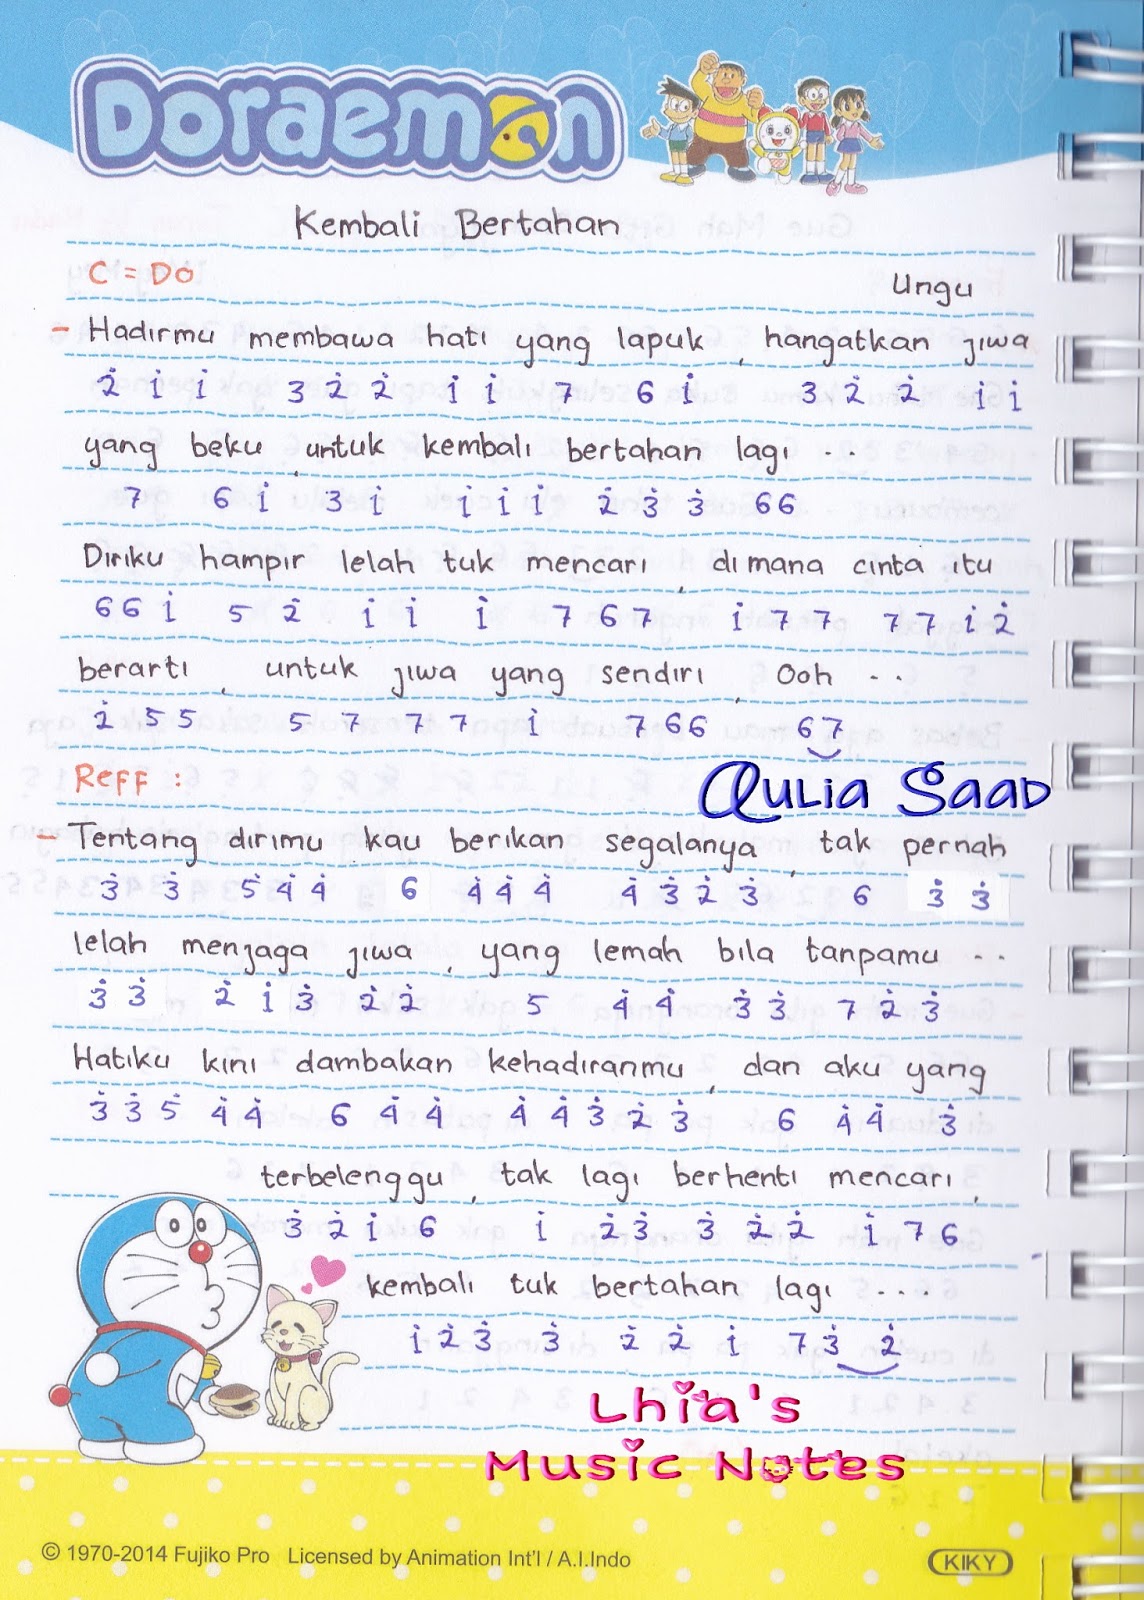 Doraemon
Kembali Bertahan
C = Do
Ungu
- Hadirmu membawa hati yang lapuk , hangatkan jiwa
2̇ 1̇ 1̇ 3 2̇ 2̇ 1̇ 1̇ 7 6 1̇ 3 2̇ 2̇ 1̇ 1̇
yang beku , untuk kembali bertahan lagi ...
7 6 1̇ 3 1̇ 1̇ 1̇ 1̇ 2̇ 3̇ 3̇ 6 6
Diriku hampir lelah tuk mencari , di mana cinta itu
6 6 1̇ 5 2̇ 1̇ 1̇ 1̇ 7 6 7 1̇ 7 7 7 7 1̇ 2̇
berarti , untuk jiwa yang sendiri , Ooh ..
2̇ 5 5 5 7 7 7 1̇ 7 6 6 6 7
Reff :
Aulia Saad
- Tentang dirimu kau berikan segalanya , tak pernah
3̇ 3̇ 5̇ 4̇ 4̇ 6 4̇ 4̇ 4̇ 4̇ 3̇ 2̇ 3̇ 6 3̇ 3̇
lelah menjaga jiwa , yang lemah bila tanpamu ..
3̇ 3̇ 2̇ 1̇ 3̇ 2̇ 2̇ 5 4̇ 4̇ 3̇ 3̇ 7 2̇ 3̇
Hatiku kini dambakan kehadiranmu , dan aku yang
3̇ 3̇ 5̇ 4̇ 4̇ 6 4̇ 4̇ 4̇ 4̇ 3̇ 2̇ 3̇ 6 4̇ 4̇ 3̇
terbelenggu , tak lagi berhenti mencari ,
3̇ 2̇ 1̇ 6 1̇ 2̇ 3̇ 3̇ 2̇ 2̇ 1̇ 7 6
kembali tuk bertahan lagi ....
1̇ 2̇ 3̇ 3̇ 2̇ 2̇ 1̇ 7 3̇ 2̇
Lhia's
Music Notes
© 1970-2014 Fujiko Pro Licensed by Animation Int'l / A.I.Indo
KIKY